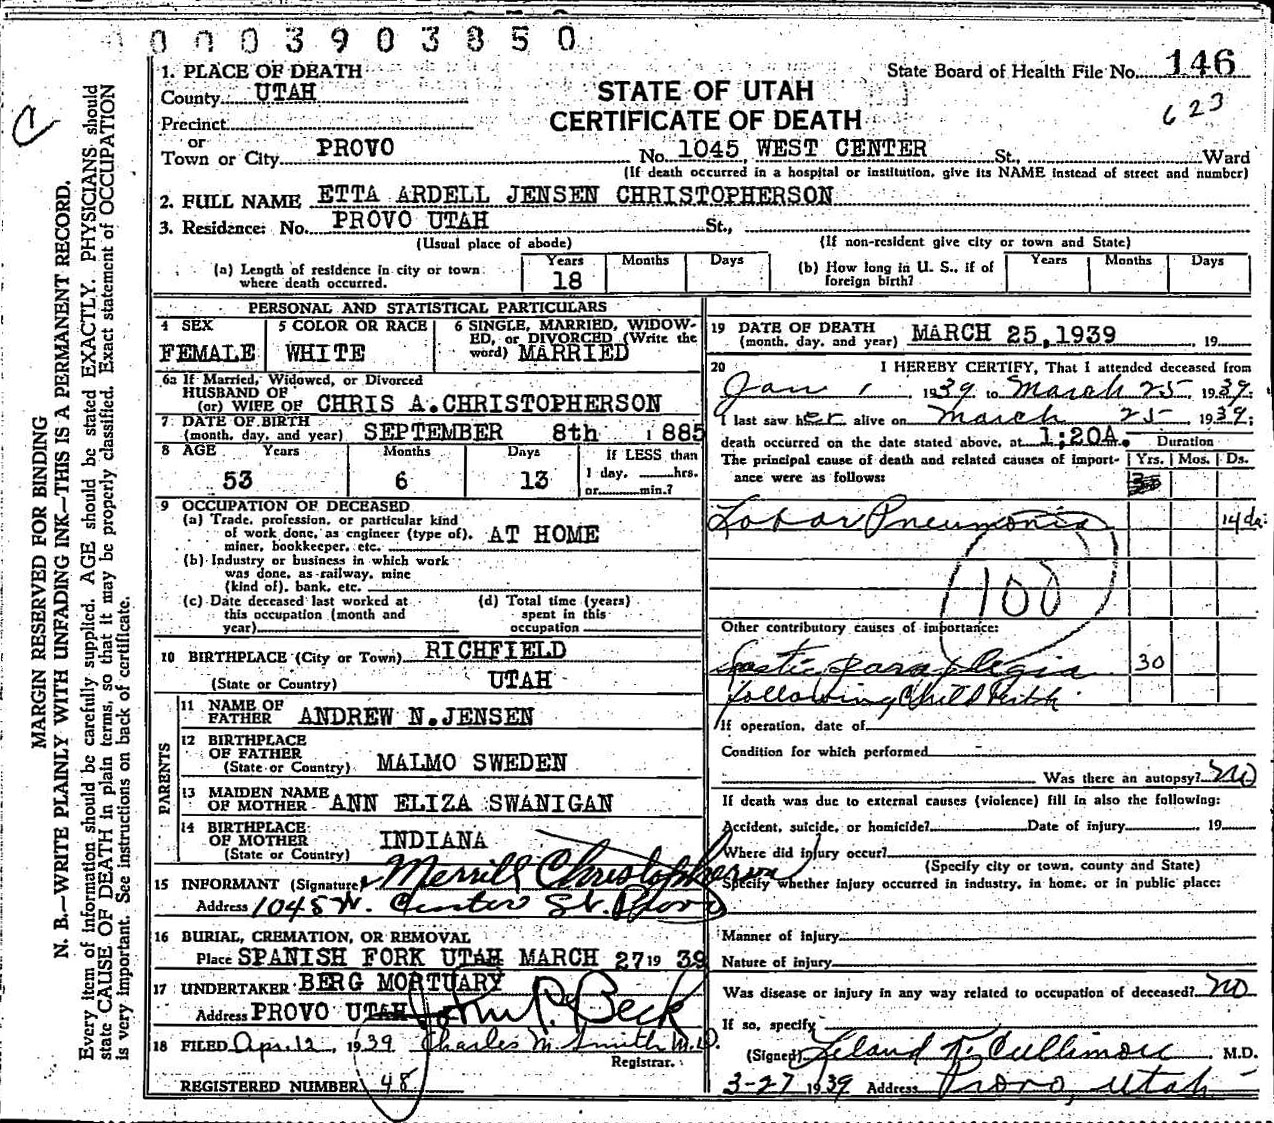 0003903850
State Board of Health File No. 146
623
C
MARGIN RESERVED FOR BINDING
N. B.—WRITE PLAINLY WITH UNFADING INK—THIS IS A PERMANENT RECORD.
Every item of information should be carefully supplied. AGE should be stated EXACTLY. PHYSICIANS should
state CAUSE OF DEATH in plain terms, so that it may be properly classified. Exact statement of OCCUPATION
is very important. See instructions on back of certificate.
STATE OF UTAH
CERTIFICATE OF DEATH
1. PLACE OF DEATH
County UTAH
Precinct
or
Town or City PROVO No. 1045 WEST CENTER St., Ward
(If death occurred in a hospital or institution, give its NAME instead of street and number)
2. FULL NAME ETTA ARDELL JENSEN CHRISTOPHERSON
3. Residence: No. PROVO UTAH St.,
(Usual place of abode) (If non-resident give city or town and State)
(a) Length of residence in city or town where death occurred. Years 18 Months Days
(b) How long in U. S., if of foreign birth? Years Months Days
PERSONAL AND STATISTICAL PARTICULARS
4 SEX FEMALE
5 COLOR OR RACE WHITE
6 SINGLE, MARRIED, WIDOWED, or DIVORCED (Write the word) MARRIED
6a If Married, Widowed, or Divorced
HUSBAND OF
(or) WIFE OF CHRIS A. CHRISTOPHERSON
7 DATE OF BIRTH
(month, day, and year) SEPTEMBER 8th 1885
8 AGE Years 53 Months 6 Days 13 If LESS than 1 day, hrs. or min.?
9 OCCUPATION OF DECEASED
(a) Trade, profession, or particular kind of work done, as engineer (type of), miner, bookkeeper, etc. AT HOME
(b) Industry or business in which work was done, as railway, mine (kind of), bank, etc.
(c) Date deceased last worked at this occupation (month and year)
(d) Total time (years) spent in this occupation
10 BIRTHPLACE (City or Town) RICHFIELD
(State or Country) UTAH
PARENTS
11 NAME OF FATHER ANDREW N. JENSEN
12 BIRTHPLACE OF FATHER
(State or Country) MALMO SWEDEN
13 MAIDEN NAME OF MOTHER ANN ELIZA SWANIGAN
14 BIRTHPLACE OF MOTHER
(State or Country) INDIANA
15 INFORMANT (Signature) Merrill Christopherson
Address 1045 W. Center St. Provo
16 BURIAL, CREMATION, OR REMOVAL
Place SPANISH FORK UTAH MARCH 27 19 39
17 UNDERTAKER BERG MORTUARY
Address PROVO UTAH John P. Beck
18 FILED Apr. 12, 1939 Charles M. Smith M.D.
Registrar.
REGISTERED NUMBER 48
19 DATE OF DEATH
(month, day, and year) MARCH 25, 1939 , 19
20 I HEREBY CERTIFY, That I attended deceased from
Jan 1 1939 to March 25 1939
I last saw her alive on March 25 1939;
death occurred on the date stated above, at 1:20A. Duration
The principal cause of death and related causes of importance were as follows: Yrs. Mos. Ds.
Lobar Pneumonia 14 da.
100
Other contributory causes of importance:
Spastic paraplegia 30
following Child birth
If operation, date of
Condition for which performed
Was there an autopsy? No
If death was due to external causes (violence) fill in also the following:
Accident, suicide, or homicide? Date of injury , 19
Where did injury occur?
(Specify city or town, county and State)
Specify whether injury occurred in industry, in home, or in public place:
Manner of injury
Nature of injury
Was disease or injury in any way related to occupation of deceased? No
If so, specify
(Signed) Leland K. Cullimore M.D.
3-27 1939 Address Provo, Utah